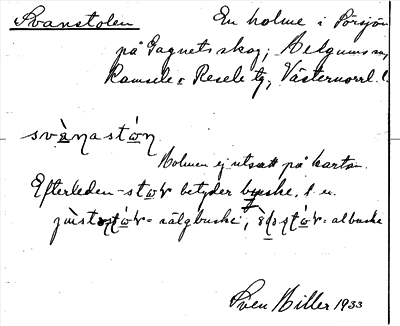 Svanstolen En holme i Törsjön
på Gagnets skog, Helgums sn,
Ramsele & Resele tg, Västernorrl. l.
svànastón
Holmen ej utsatt på kartan.
Efterleden -stor betyder buske, t. ex.
= sälgbuske, = albuske
Sven Hiller 1933